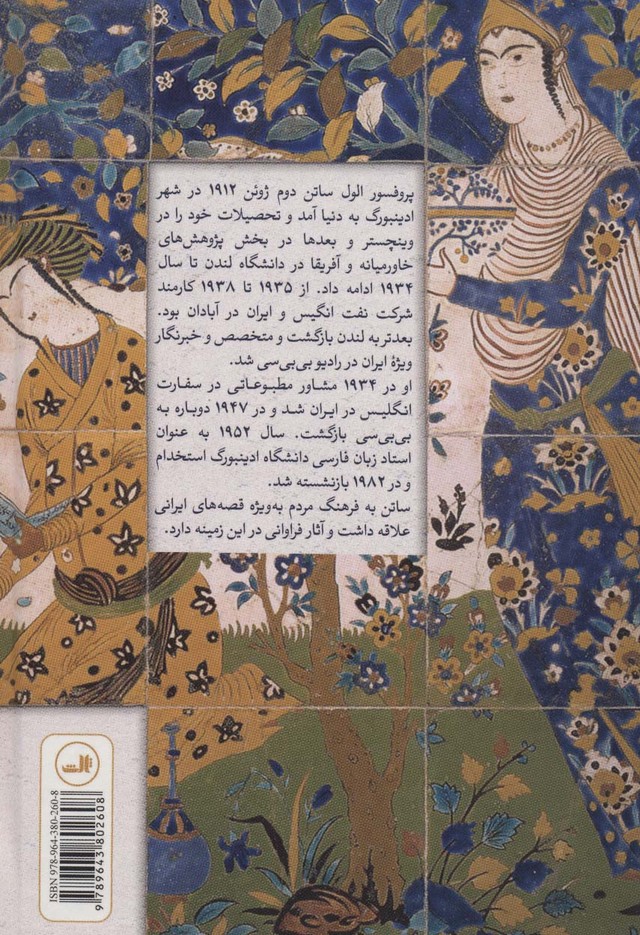 پروفسور الول ساتن دوم ژوئن ۱۹۱۲ در شهر
ادینبورگ به دنیا آمد و تحصیلات خود را در
وینچستر و بعدها در بخش پژوهش‌های
خاورمیانه و آفریقا در دانشگاه لندن تا سال
۱۹۳۴ ادامه داد. از ۱۹۳۵ تا ۱۹۳۸ کارمند
شرکت نفت انگیس و ایران در آبادان بود.
بعدتر به لندن بازگشت و متخصص و خبرنگار
ویژهٔ ایران در رادیو بی‌بی‌سی شد.
او در ۱۹۳۴ مشاور مطبوعاتی در سفارت
انگلیس در ایران شد و در ۱۹۴۷ دوباره به
بی‌بی‌سی بازگشت. سال ۱۹۵۲ به عنوان
استاد زبان فارسی دانشگاه ادینبورگ استخدام
و در ۱۹۸۲ بازنشسته شد.
ساتن به فرهنگ مردم به‌ویژه قصه‌های ایرانی
علاقه داشت و آثار فراوانی در این زمینه دارد.
ثالث
ISBN 978-964-380-260-8
9 789643 802608